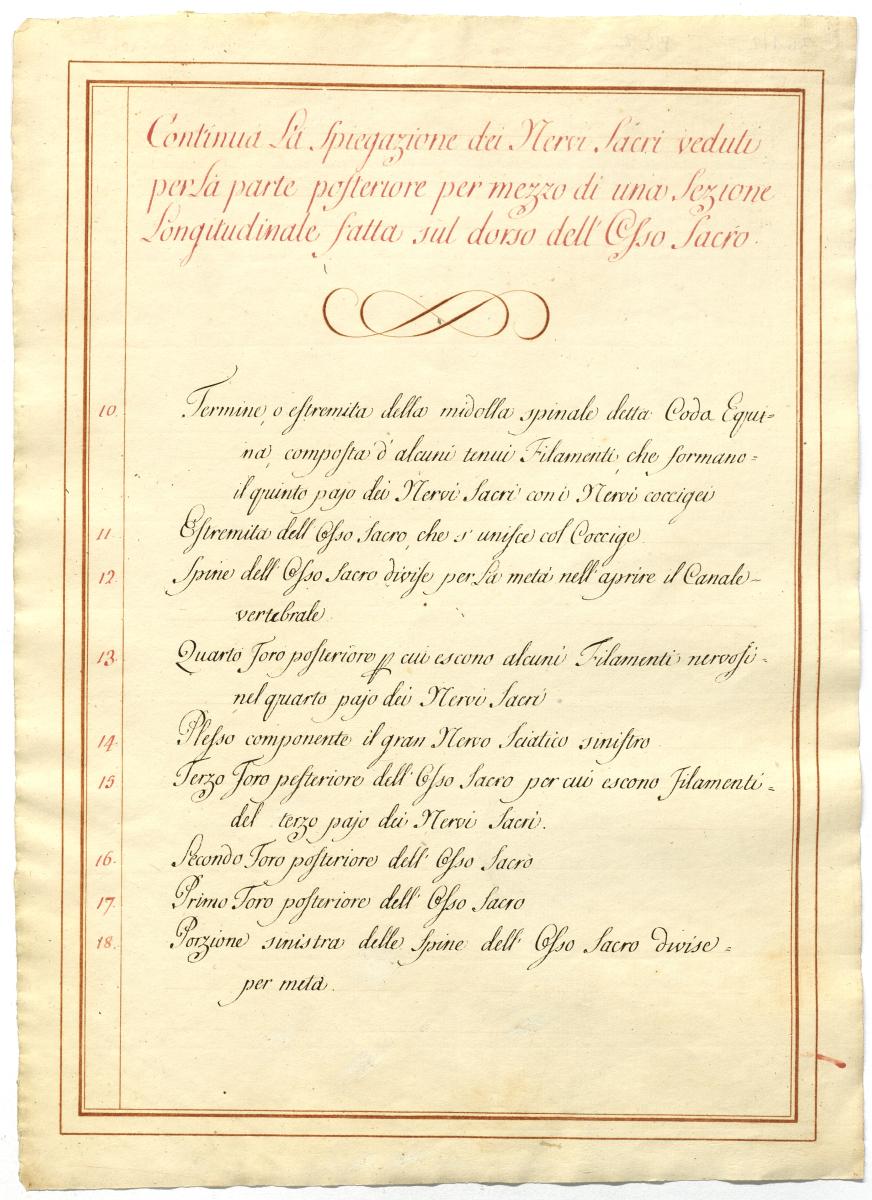 Continua La Spiegazione dei Nervi Sacri veduti
per La parte posteriore per mezzo di una Sezione
Longitudinale fatta sul dorso dell' Osso Sacro.
10. Termine, o estremita della midolla spinale detta Coda Equi=
na, composta d' alcuni tenui Filamenti, che formano=
il quinto pajo dei Nervi Sacri con i Nervi coccigei
11. Estremita dell' Osso Sacro, che s' unisce col Coccige
12. Spine dell' Osso Sacro divise per La metà nell' aprire il Canale=
vertebrale
13. Quarto Foro posteriore p cui escono alcuni Filamenti nervosi=
nel quarto pajo dei Nervi Sacri
14. Plesso componente il gran Nervo Sciatico sinistro
15. Terzo Foro pesteriore dell' Osso Sacro per cui escono Filamenti=
del terzo pajo dei Nervi Sacri.
16. Secondo Foro posteriore dell' Osso Sacro
17. Primo Foro posteriore dell' Osso Sacro
18. Porzione sinistra delle Spine dell' Osso Sacro divise=
per metà.